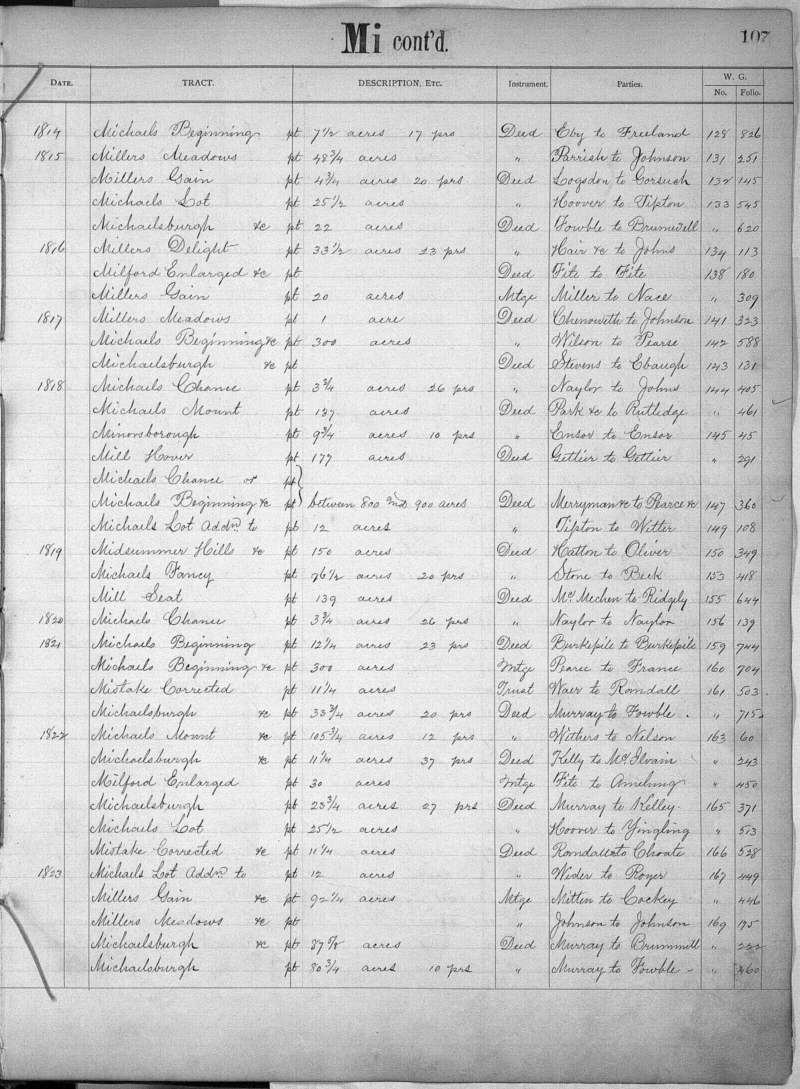 Mi cont'd.
107
DATE. TRACT. DESCRIPTION, ETC. Instrument. Parties. W. G.
No. Folio.
1814 Michaels Beginning pt 7 1/2 acres 17 prs Deed Eby to Freeland 128 826
1815 Millers Meadows pt 48 3/4 acres " Parrish to Johnson 131 251
Millers Gain pt 4 3/4 acres 20 prs Deed Logsdon to Gorsuch 132 145
Michaels Lot pt 25 1/2 acres " Hoover to Tipton 133 545
Michaelsburgh &c pt 22 acres Deed Fowble to Brumwell " 620
1816 Millers Delight pt 33 1/2 acres 23 prs " Hair &c to Johns 134 113
Milford Enlarged &c pt Deed Fite to Fite 138 180
Millers Gain pt 20 acres Mtge Miller to Nace " 309
1817 Millers Meadows pt 1 acre Deed Chenowith to Johnson 141 323
Michaels Beginning &c pt 300 acres " Wilson to Pearse 142 588
Michaelsburgh &c pt Deed Stevens to Ebaugh 143 131
1818 Michaels Chance pt 3 3/4 acres 26 prs " Naylor to Johns 144 405
Michaels Mount pt 137 acres Deed Park &c to Rutledge " 461
Minorsborough pt 9 3/4 acres 10 prs " Ensor to Ensor 145 45
Mill Hover pt 177 acres Deed Gettier to Gettier " 291
Michaels Chance or pt
Michaels Beginning &c pt between 800 and 900 acres Deed Merryman &c to Pearce &c 147 360
Michaels Lot Addn. to pt 12 acres " Tipton to Witter 149 108
1819 Midsummer Hills &c pt 150 acres Deed Hatton to Oliver 150 349
Michaels Fancy pt 76 1/2 acres 20 prs " Stone to Beck 153 418
Mill Seat pt 139 acres Deed McMechen to Ridgely 155 644
1820 Michaels Chance pt 3 3/4 acres 26 prs " Naylor to Naylor 156 139
1821 Michaels Beginning pt 12 1/4 acres 23 prs Deed Burkepile to Burkepile 159 744
Michaels Beginning &c pt 300 acres Mtge Pearce to France 160 704
Mistake Corrected pt 11 1/4 acres Trust Waer to Romdall 161 503
Michaelsburgh &c pt 33 3/4 acres 20 prs Deed Murray to Fowble " 715
1822 Michaels Mount &c pt 105 3/4 acres 12 prs " Withers to Nelson 163 60
Michaelsburgh &c pt 11 1/4 acres 37 prs Deed Kelly to McIlvain " 243
Milford Enlarged pt 30 acres Mtge Fite to Amelung " 450
Michaelsburgh pt 23 3/4 acres 27 prs Deed Murray to Kelley 165 371
Michaels Lot pt 25 1/2 acres " Hoover to Yingling " 513
Mistake Corrected &c pt 11 1/4 acres Deed Romdall to Choate 166 528
1823 Michaels Lot Addn. to pt 12 acres " Weder to Royer 167 449
Millers Gain &c pt 92 1/4 acres Mtge Mitten to Cockey " 446
Millers Meadows &c pt " Johnson to Johnson 169 175
Michaelsburgh &c pt 87 7/8 acres Deed Murray to Brummill " 222
Michaelsburgh pt 80 3/4 acres 10 prs " Murray to Fowble " 260